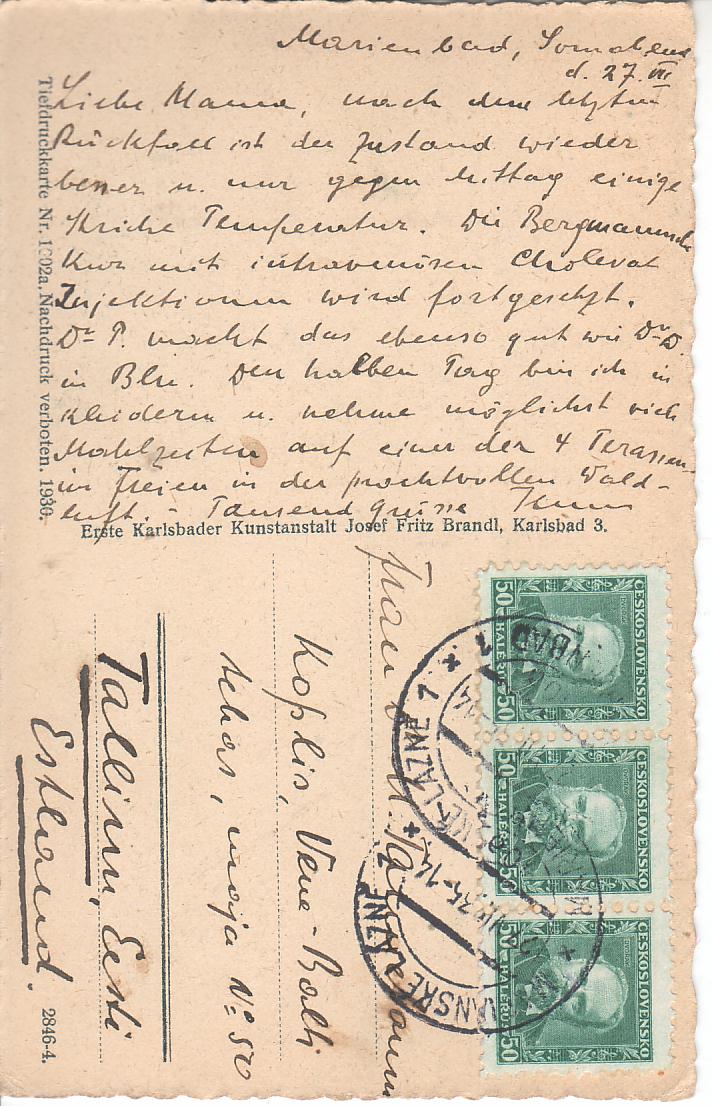 Marienbad, Sonnabend
d. 27. VII
Liebe Mama, nach dem letzten
Rückfall ist der Zustand wieder
besser u. nur gegen Mittag einige
Striche Temperatur. Die Bergmannsche
Kur mit intravenösen Cholevat
Injektionen wird fortgesetzt.
Dr P. macht das ebenso gut wie Dr D.
in Bln. Den halben Tag bin ich in
Kleidern u. nehme möglichst viel
Mahlzeiten auf einer der 4 Terassen
im Freien in der prachtvollen Wald-
luft. - Tausend Grüsse
Tiefdruckkarte Nr. 1002a. Nachdruck verboten. 1930.
Erste Karlsbader Kunstanstalt Josef Fritz Brandl, Karlsbad 3.
Frau
Koplis, Vene-Balti
tehas, maja No 50
Tallinn, Eesti
Estland.
2846-4.
ČESKOSLOVENSKO
50 HALÉŘŮ 50
ČESKOSLOVENSKO
50 HALÉŘŮ 50
ČESKOSLOVENSKO
50 HALÉŘŮ 50
MARIÁNSKÉ LÁZNĚ 1